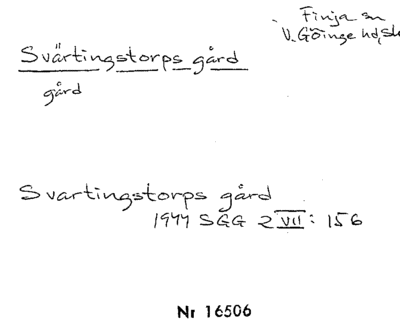 Finja sn
V. Göinge hd, Sk
Svärtingstorps gård
gård
Svartingstorps gård
1944 SGG 2 VII: 156
Nr 16506